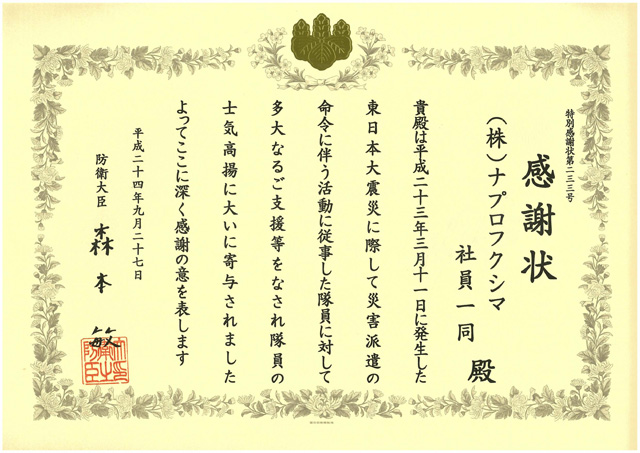 特別感謝状第二三三号
感謝状
(株)ナプロフクシマ
社員一同 殿
貴殿は平成二十三年三月十一日に発生した
東日本大震災に際して災害派遣の
命令に伴う活動に従事した隊員に対して
多大なるご支援等をなされ隊員の
士気高揚に大いに寄与されました
よってここに深く感謝の意を表します
平成二十四年九月二十七日
防衛大臣 森本 敏
防衛大臣